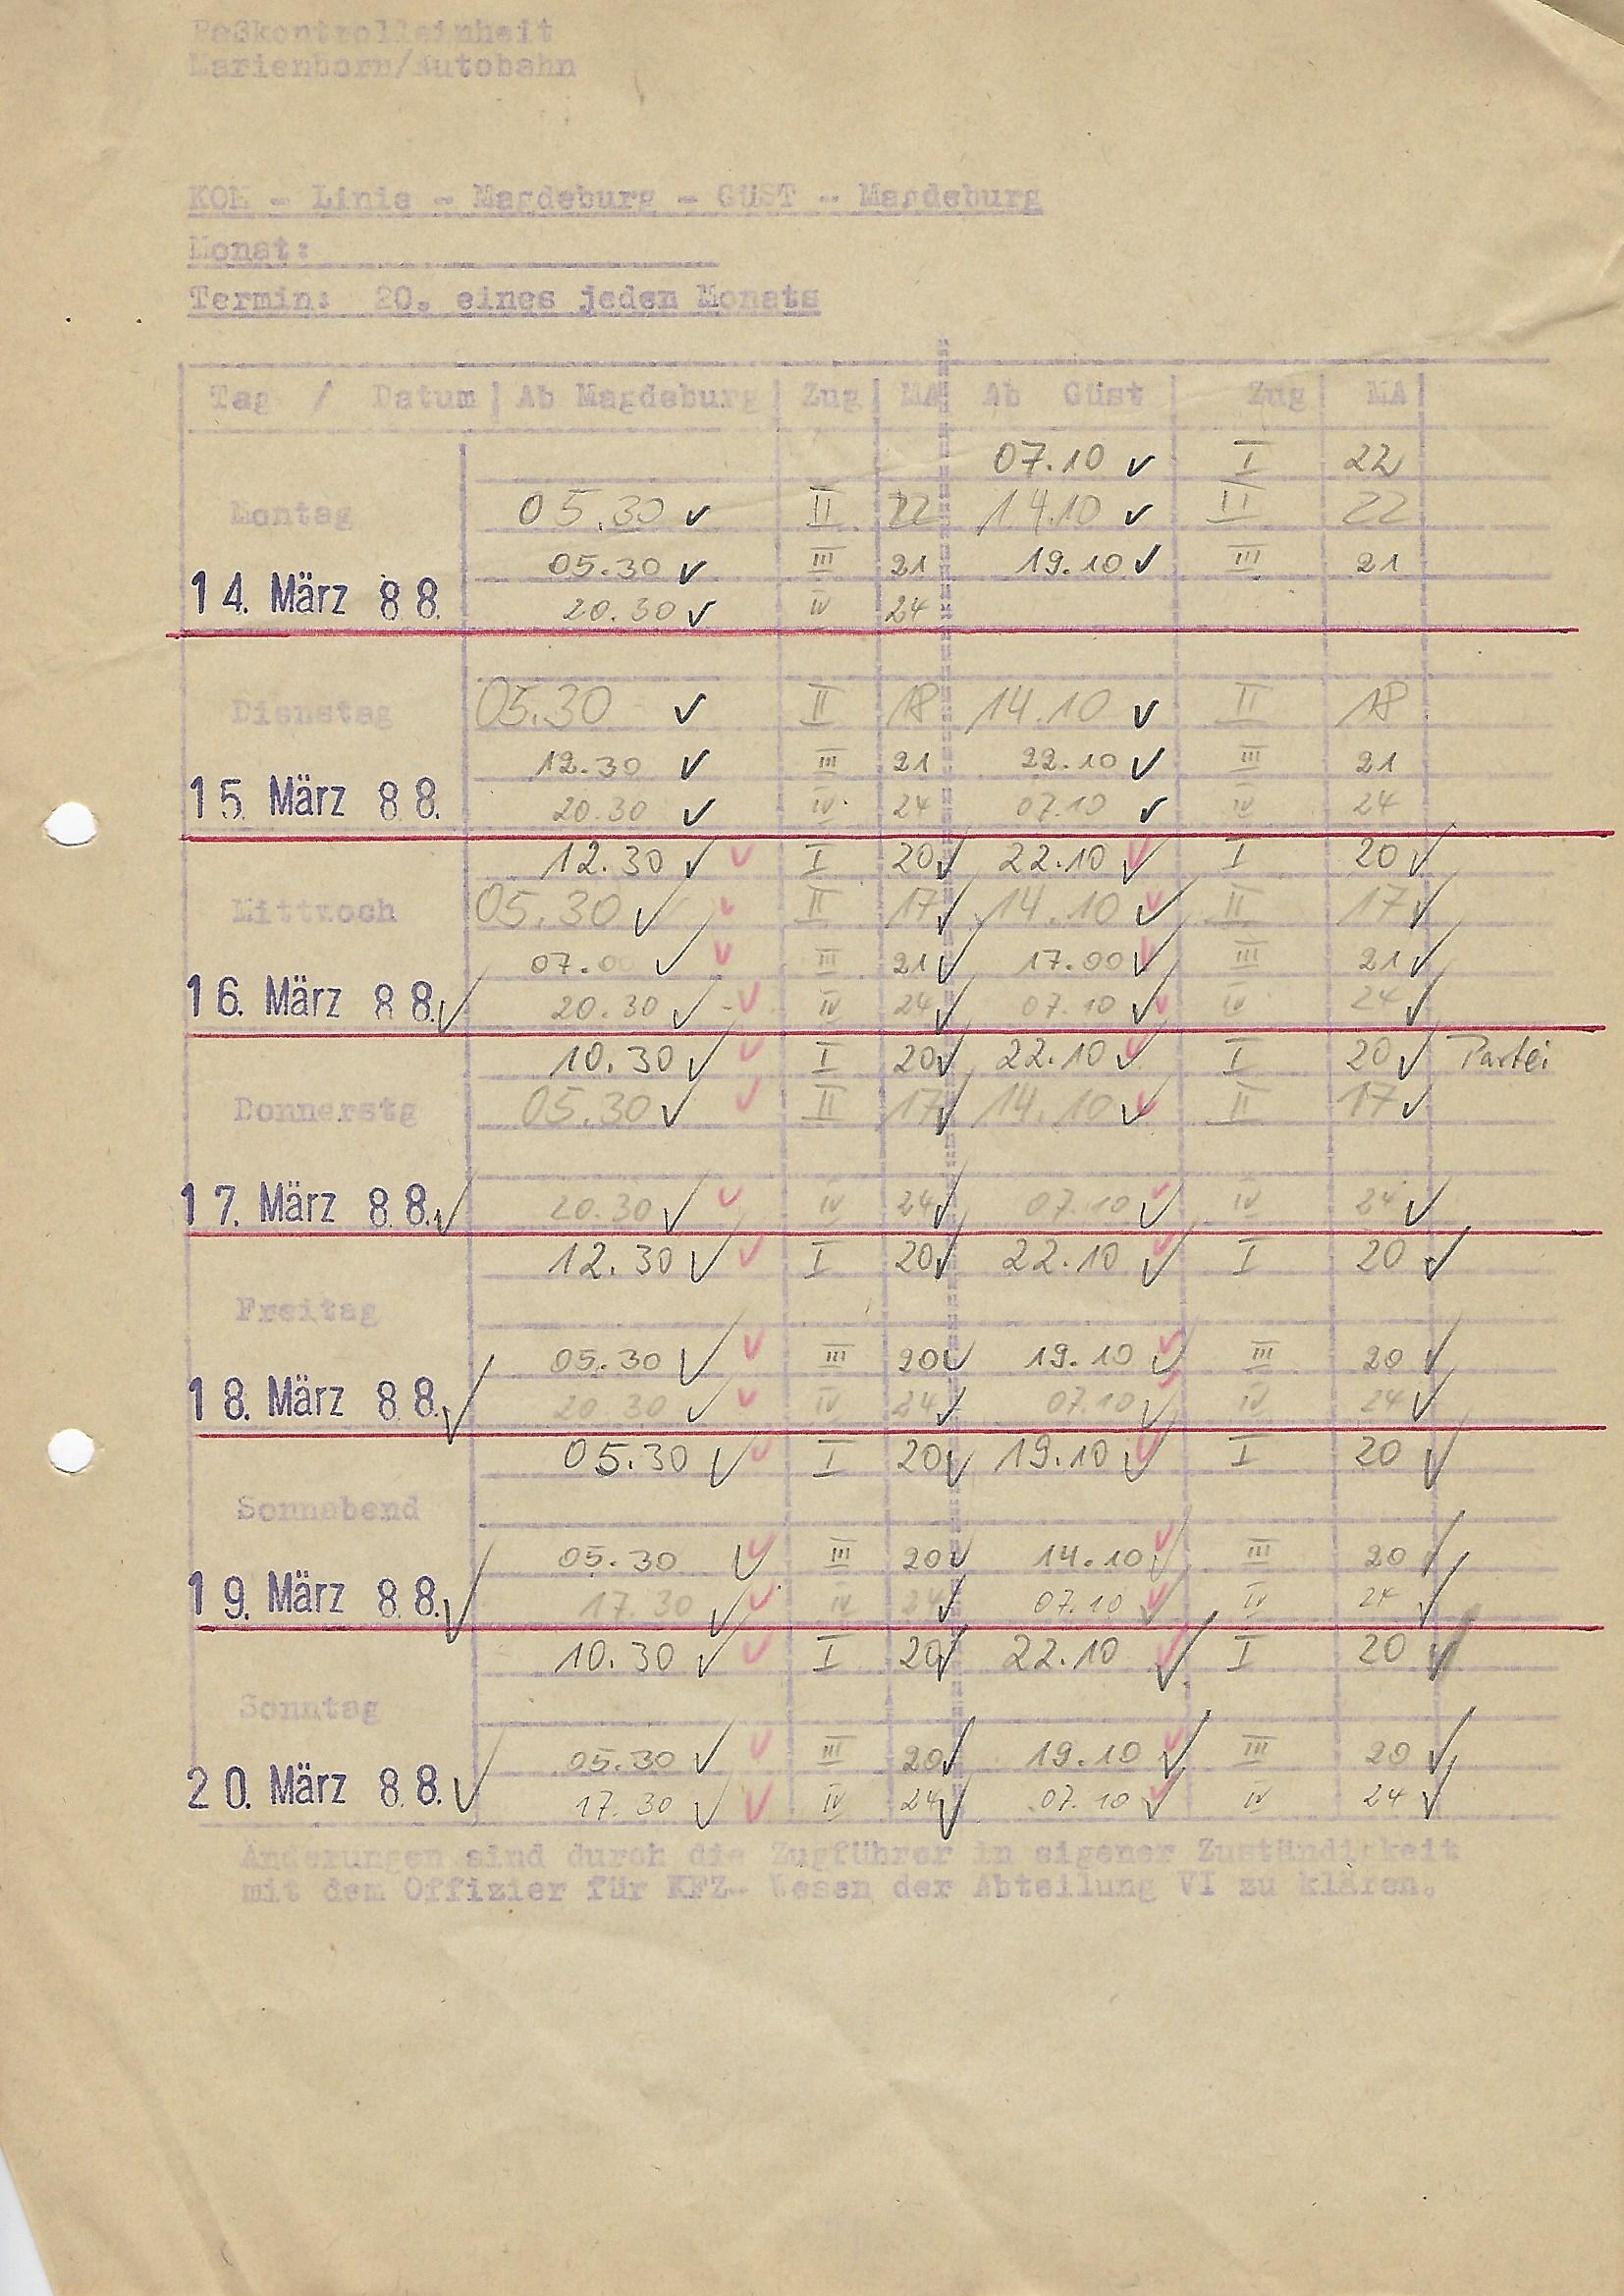 Paßkontrolleinheit
Marienborn/Autobahn
KOM - Linie - Magdeburg - GÜST - Magdeburg
Monat:
Termin: 20. eines jeden Monats
Tag / Datum Ab Magdeburg Zug MA Ab Güst Zug MA
07.10 ✓ I 22
Montag 05.30 ✓ II 22 14.10 ✓ II 22
05.30 ✓ III 21 19.10 ✓ III 21
14. März 88. 20.30 ✓ IV 24
Dienstag 05.30 ✓ II 18 14.10 ✓ II 18
12.30 ✓ III 21 22.10 ✓ III 21
15. März 88. 20.30 ✓ IV 24 07.10 ✓ IV 24
12.30 ✓ ✓ I 20 ✓ 22.10 ✓ I 20 ✓
Mittwoch 05.30 ✓ ✓ II 17 ✓ 14.10 ✓ II 17 ✓
07.00 ✓ ✓ III 21 ✓ 17.00 ✓ III 21 ✓
16. März 88. ✓ 20.30 ✓ ✓ IV 24 ✓ 07.10 ✓ IV 24 ✓
10.30 ✓ ✓ I 20 ✓ 22.10 ✓ I 20 ✓ Partei
Donnerstg 05.30 ✓ ✓ II 17 ✓ 14.10 ✓ II 17 ✓
17. März 88. ✓ 20.30 ✓ ✓ IV 24 ✓ 07.10 ✓ IV 24 ✓
12.30 ✓ ✓ I 20 ✓ 22.10 ✓ I 20 ✓
Freitag
05.30 ✓ ✓ III 20 ✓ 19.10 ✓ III 20 ✓
18. März 88. ✓ 20.30 ✓ ✓ IV 24 ✓ 07.10 ✓ IV 24 ✓
05.30 ✓ ✓ I 20 ✓ 19.10 ✓ I 20 ✓
Sonnabend
05.30 ✓ ✓ III 20 ✓ 14.10 ✓ III 20 ✓
19. März 88. ✓ 17.30 ✓ ✓ IV 24 ✓ 07.10 ✓ IV 24 ✓
10.30 ✓ ✓ I 20 ✓ 22.10 ✓ I 20 ✓
Sonntag
05.30 ✓ ✓ III 20 ✓ 19.10 ✓ III 20 ✓
20. März 88. ✓ 17.30 ✓ ✓ IV 24 ✓ 07.10 ✓ IV 24 ✓
Änderungen sind durch die Zugführer in eigener Zuständigkeit
mit dem Offizier für KFZ- Wesen der Abteilung VI zu klären.